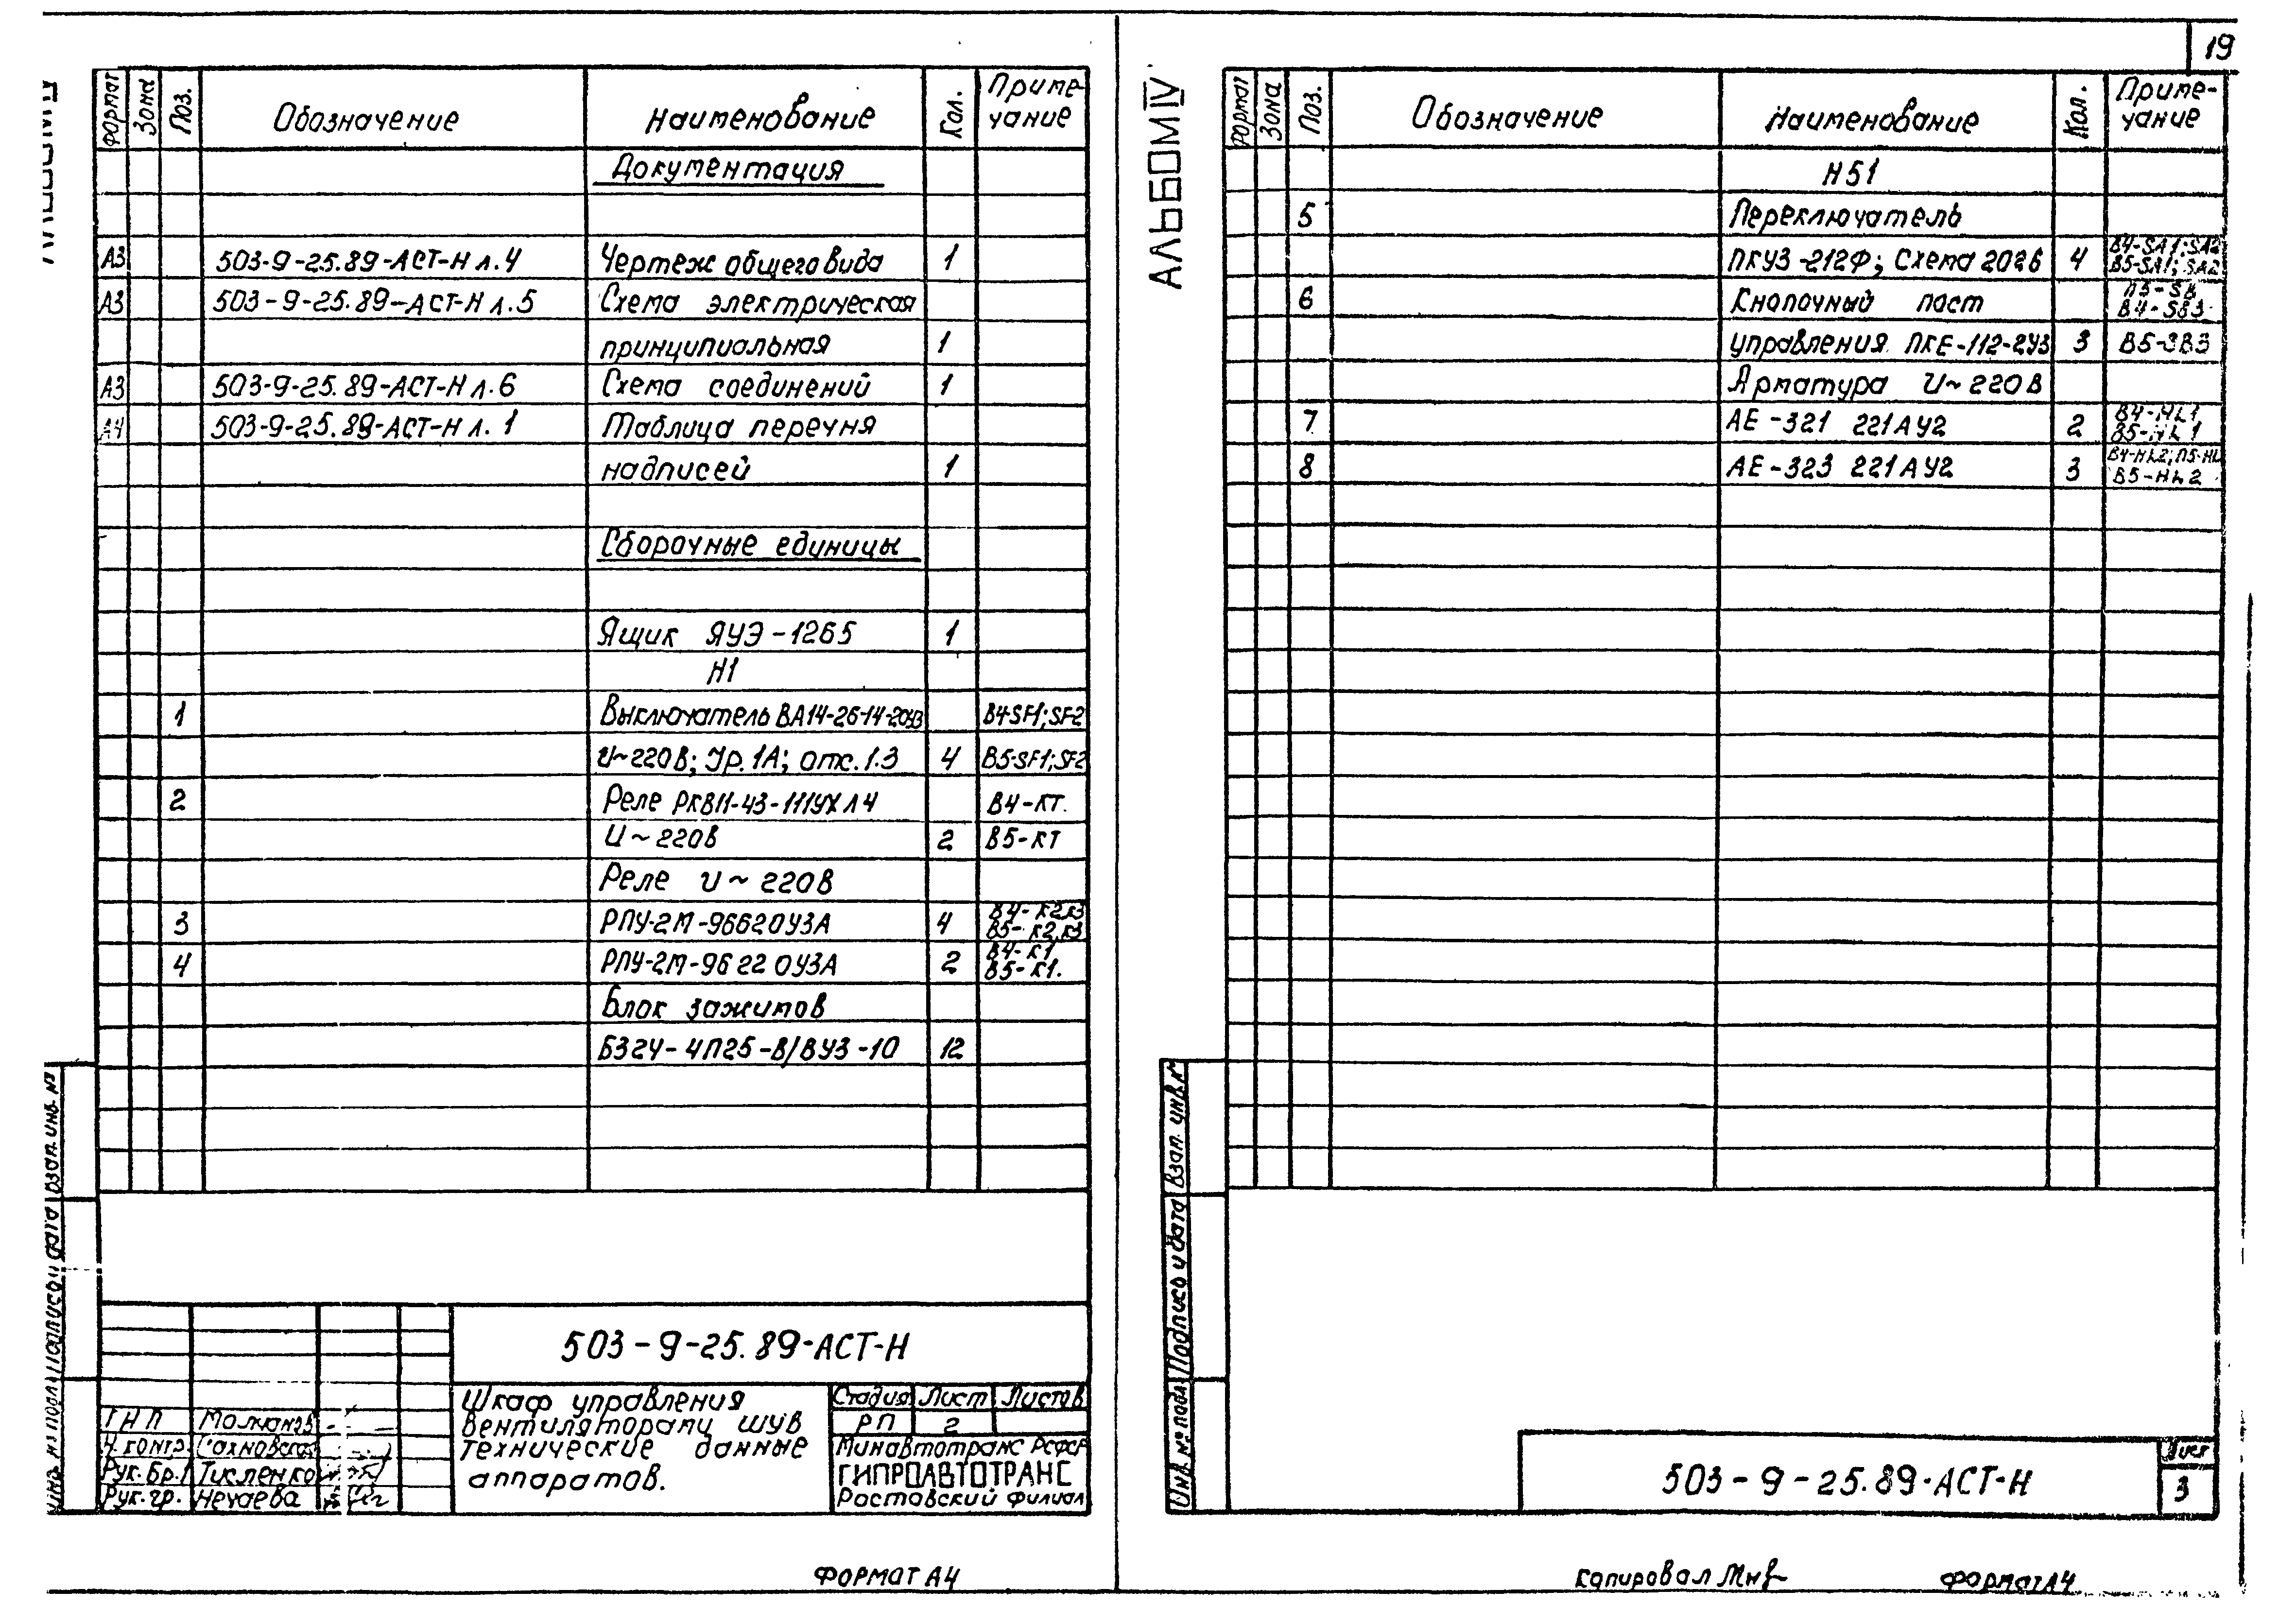 19
АЛЬБОМ IV
Формат Зона Поз. Обозначение Наименование Кол. Примечание
Документация
А3 503-9-25.89-АСТ-Н л.4 Чертеж общего вида 1
А3 503-9-25.89-АСТ-Н л.5 Схема электрическая
принципиальная 1
А3 503-9-25.89-АСТ-Н л.6 Схема соединений 1
А4 503-9-25.89-АСТ-Н л.1 Таблица перечня
надписей 1
Сборочные единицы
Ящик ЯУЭ-1265 1
Н1
1 Выключатель ВА14-26-14-20У3 В4-SF1;SF2
U~220В; Iр.1А; отс.1.3 4 В5-SF1;SF2
2 Реле РКВ11-43-111УХЛ4 В4-КТ.
U~220В 2 В5-КТ
Реле U~220В
3 РПУ-2М-96620У3А 4 В4-К2,К3
В5-К2,К3
4 РПУ-2М-96220У3А 2 В4-К1
В5-К1.
Блок зажимов
БЗ24-4П25-В/ВУ3-10 12
503-9-25.89-АСТ-Н
Шкаф управления
вентиляторами ШУВ
технические данные
аппаратов.
Стадия Лист Листов
РП 2
Минавтотранс РСФСР
ГИПРОАВТОТРАНС
Ростовский филиал
ГНП
Н.контр.
Рук.бр. Тисленко
Рук.гр. Нечаева
Взам. инв. №
Подпись и дата
Инв. № подл.
ФОРМАТ А4
Формат Зона Поз. Обозначение Наименование Кол. Примечание
Н51
5 Переключатель
ПКУ3-212Ф; Схема 2026 4 В4-SA1;SA2
В5-SA1;SA2
6 Кнопочный пост П5-SB
В4-SB3
управления ПКЕ-112-2У3 3 В5-SB3
Арматура U~220В
7 АЕ-321 221АУ2 2 В4-HL1
В5-HL1
8 АЕ-323 221АУ2 3 В4-HL2;П5-HL
В5-HL2
Взам. инв.№
Подпись и дата
Инв. № подл.
503-9-25.89-АСТ-Н
Лист
3
Копировал
ФОРМАТ А4